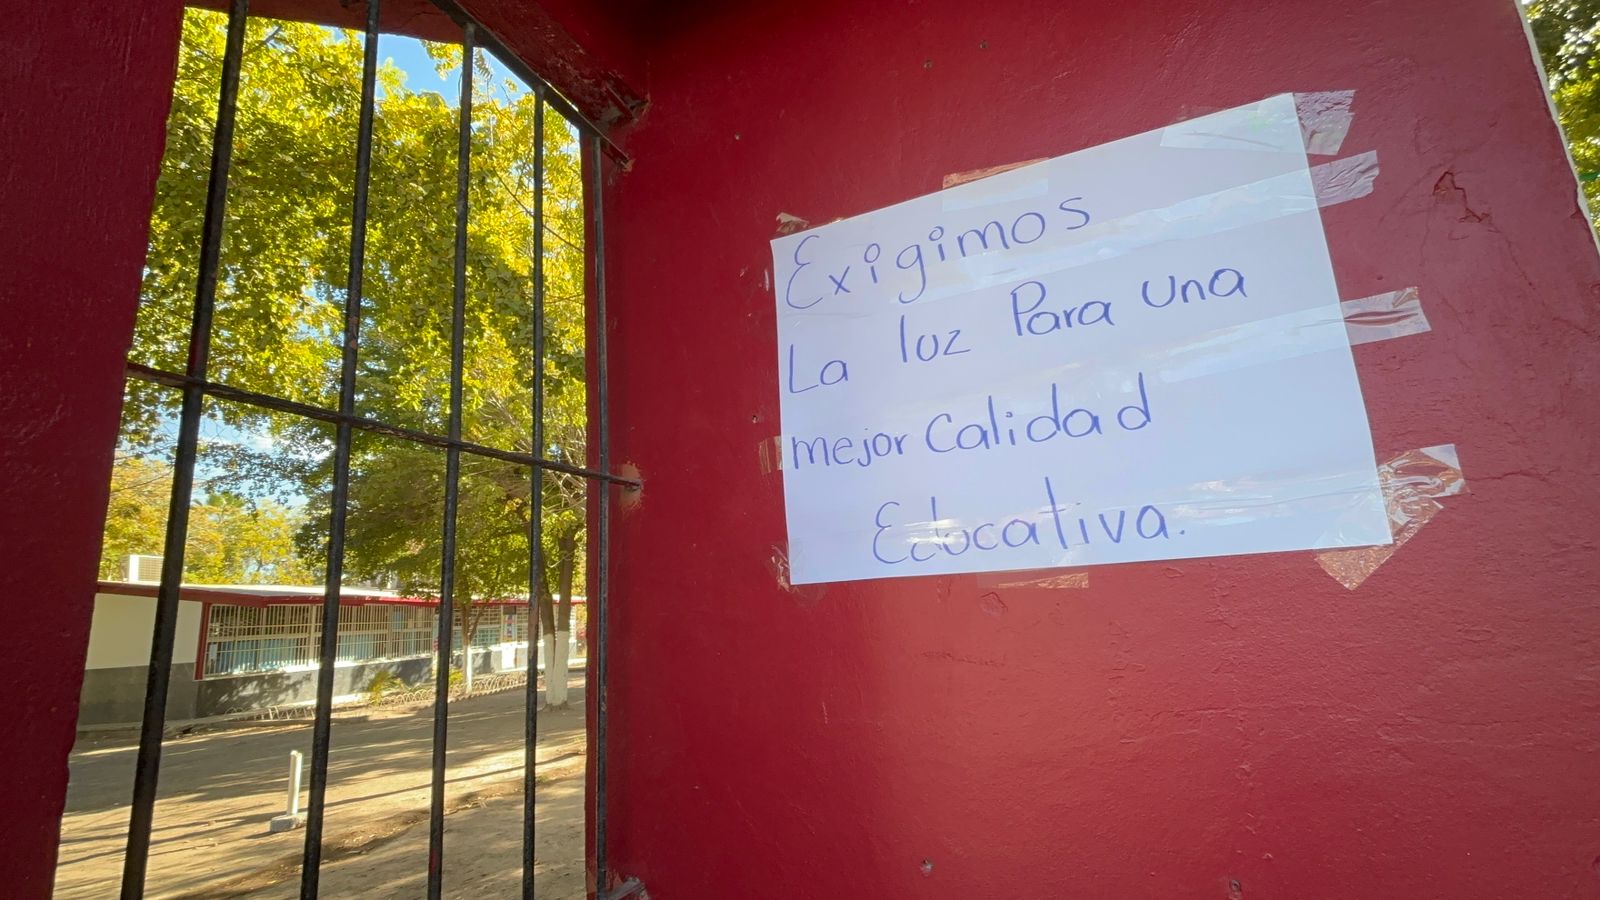 Exigimos
La luz Para una
mejor Calidad
Educativa.